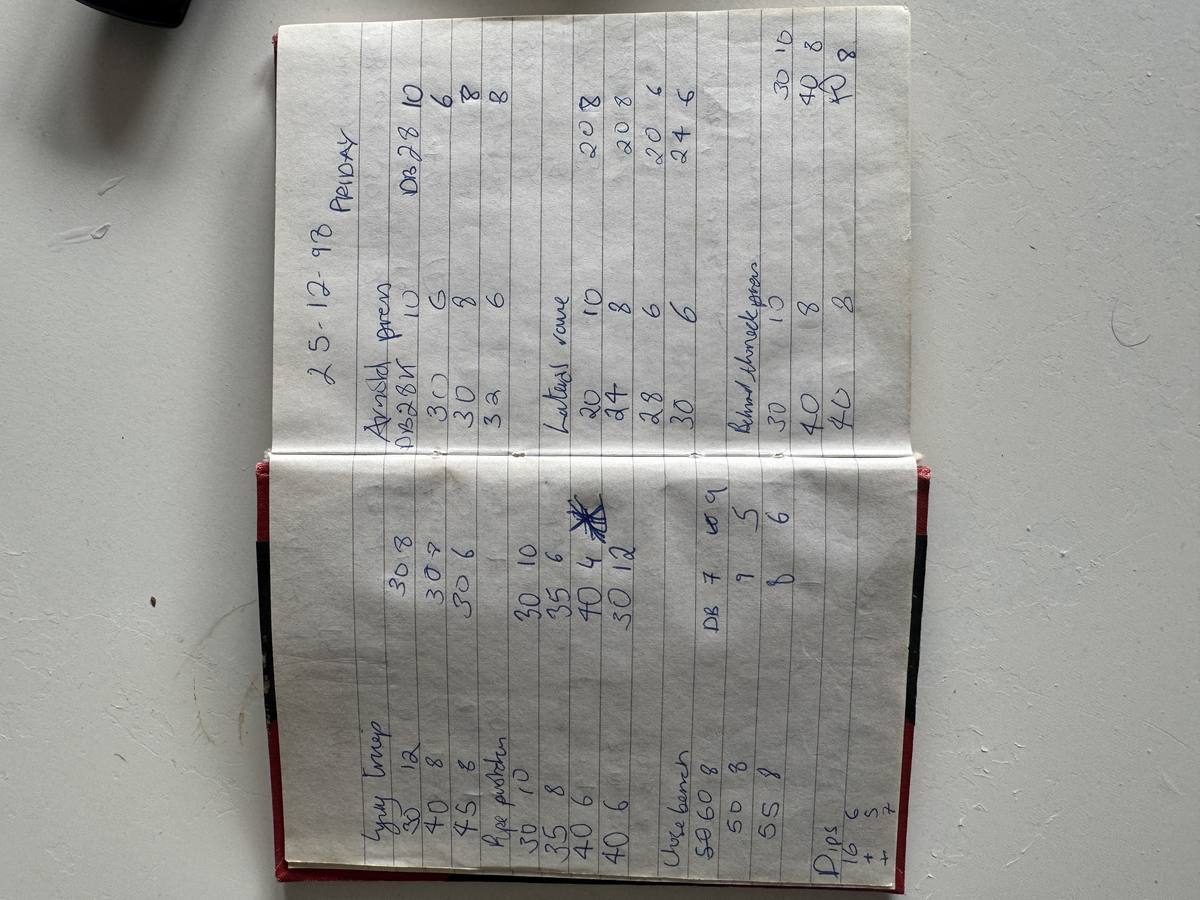 Lying Tricep
30 12 30 8
40 8 30 7
45 8 30 6
Rope pushdown
30 10 30 10
35 8 35 6
40 6 40 4
40 6 30 12
Close bench
60 8 DB 7 9
50 8 9 5
55 8 8 6
Dips
16 6
+ 5
+ 7
25-12-98
FRIDAY
Arnold press
DB28K 10 DB28 10
30 6 6
30 8 8
32 6 8
Lateral raise
20 10 20 8
24 8 20 8
28 6 20 6
30 6 24 6
Behind the neck press
30 10 30 10
40 8 40 8
40 8 40 8